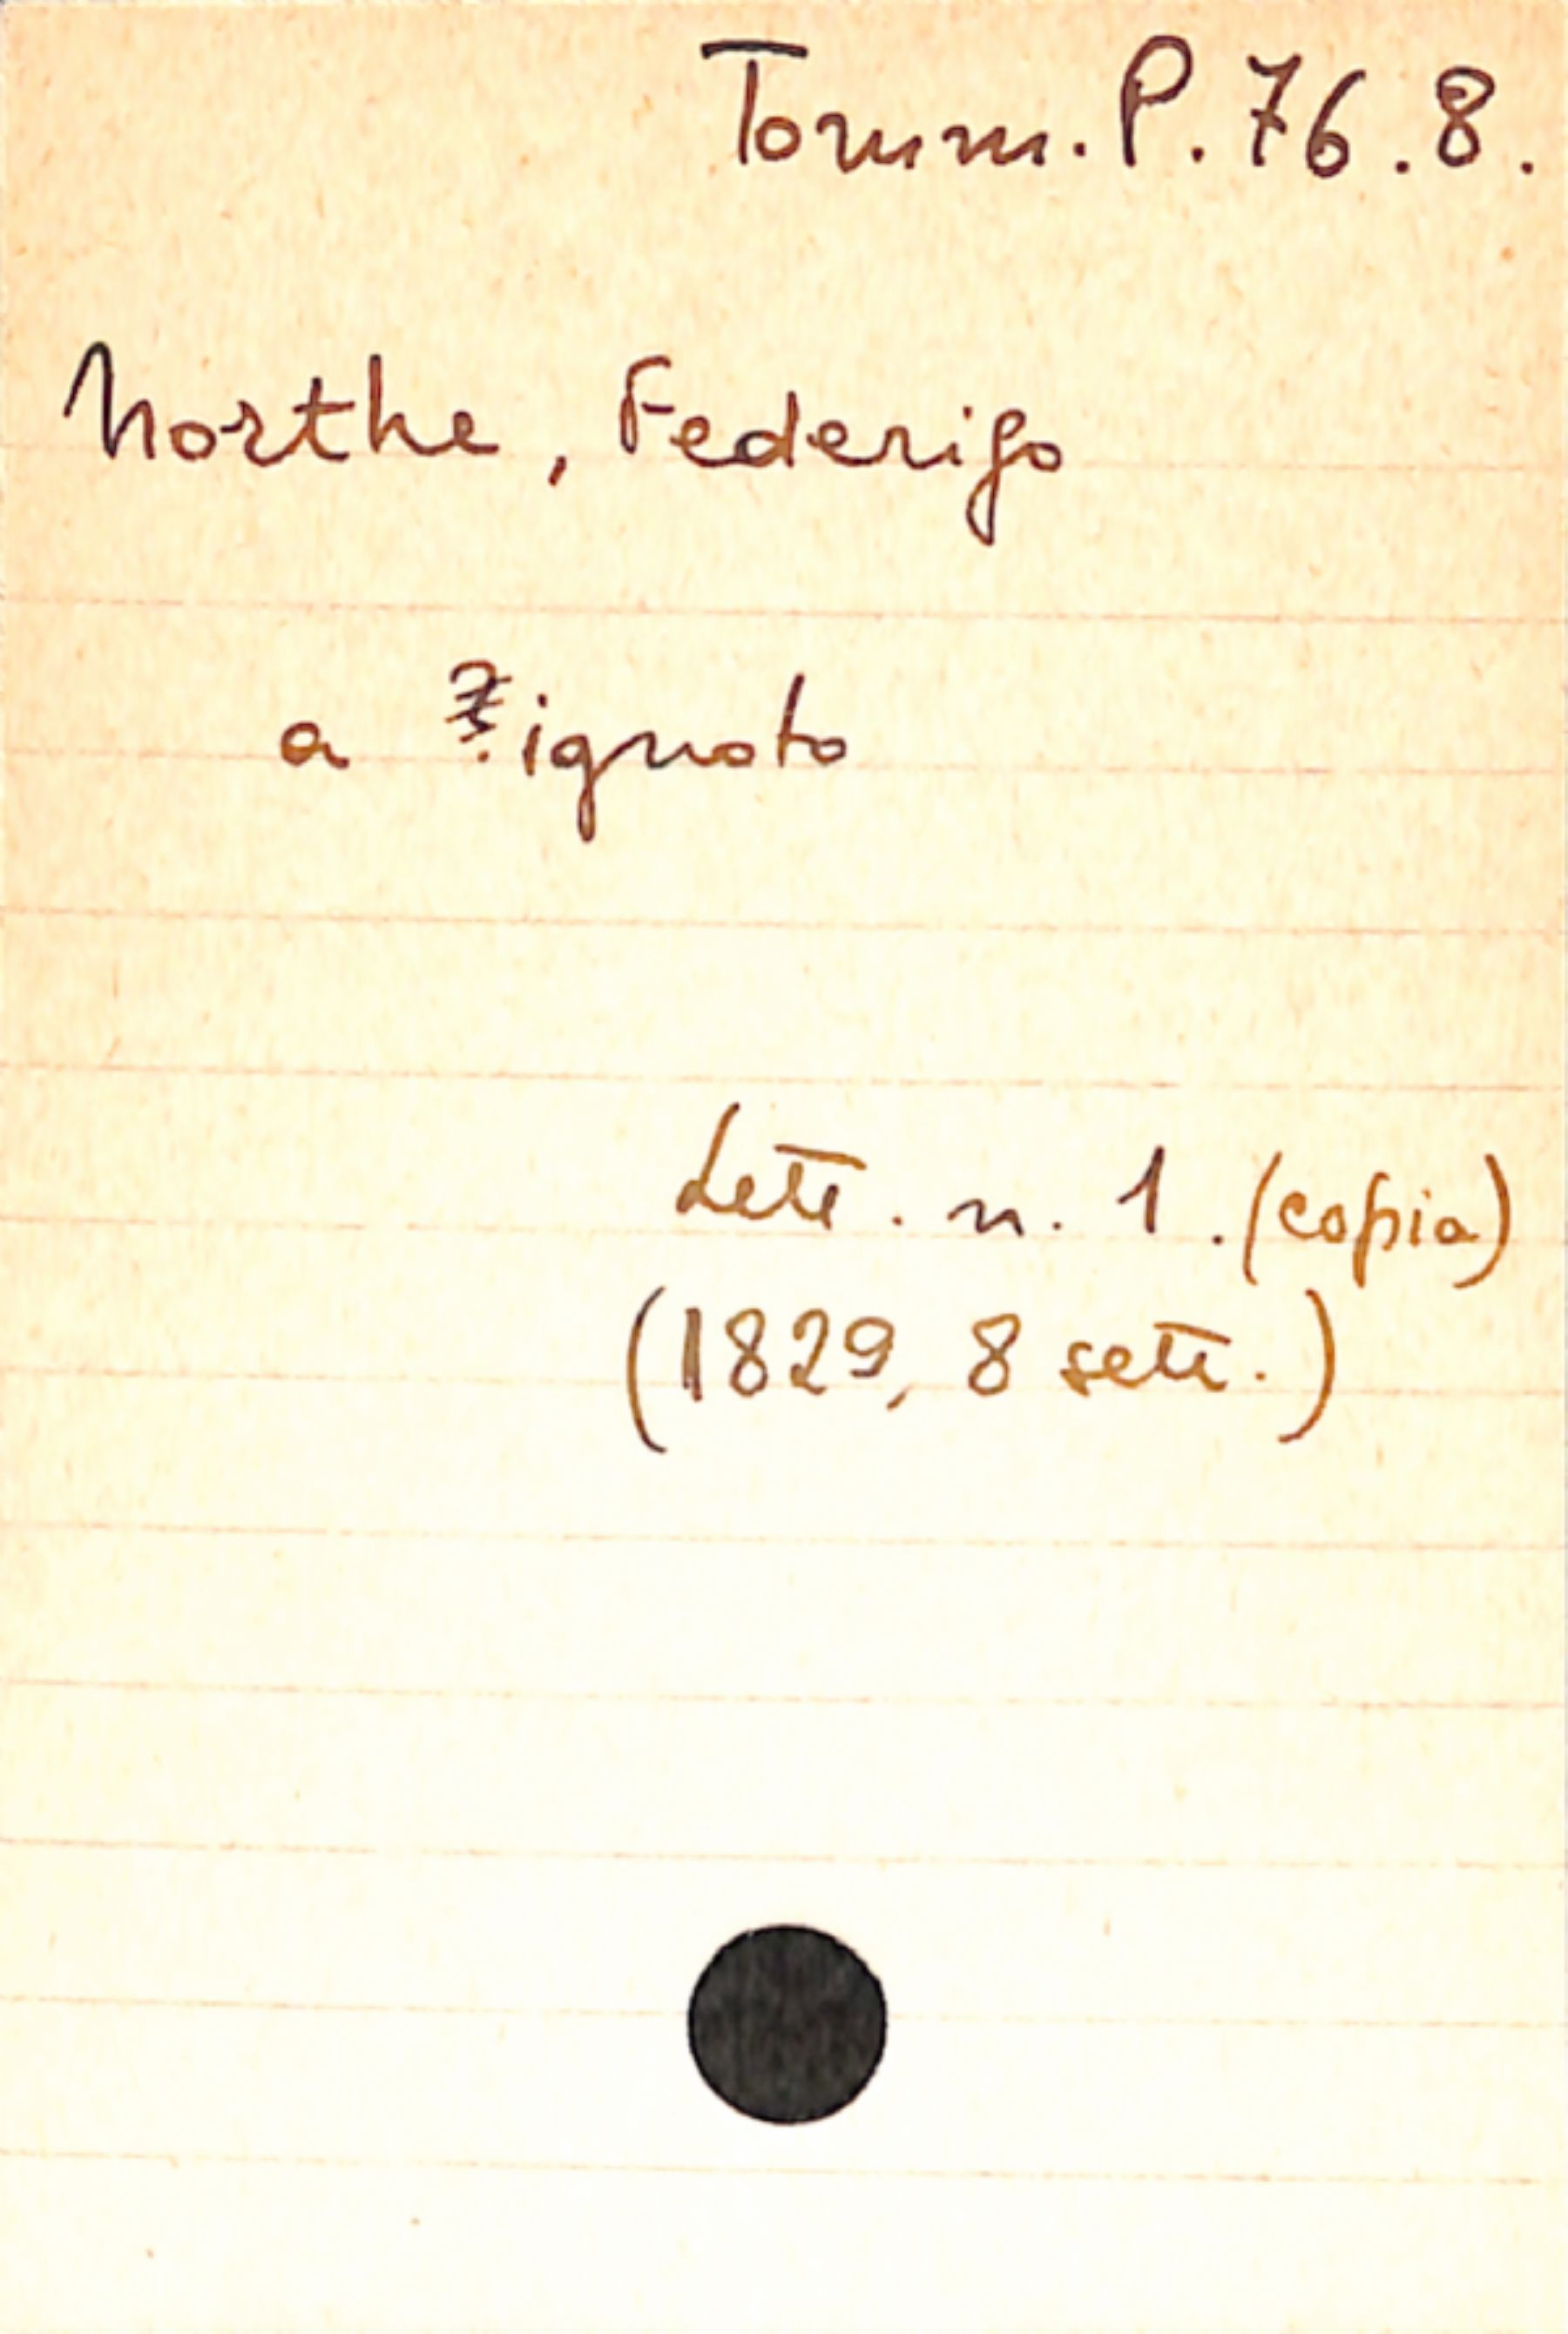 Tomm. P. 76. 8.
Northe, Federigo
a ignoto
Lett. n. 1. (copia)
(1829, 8 sett.)